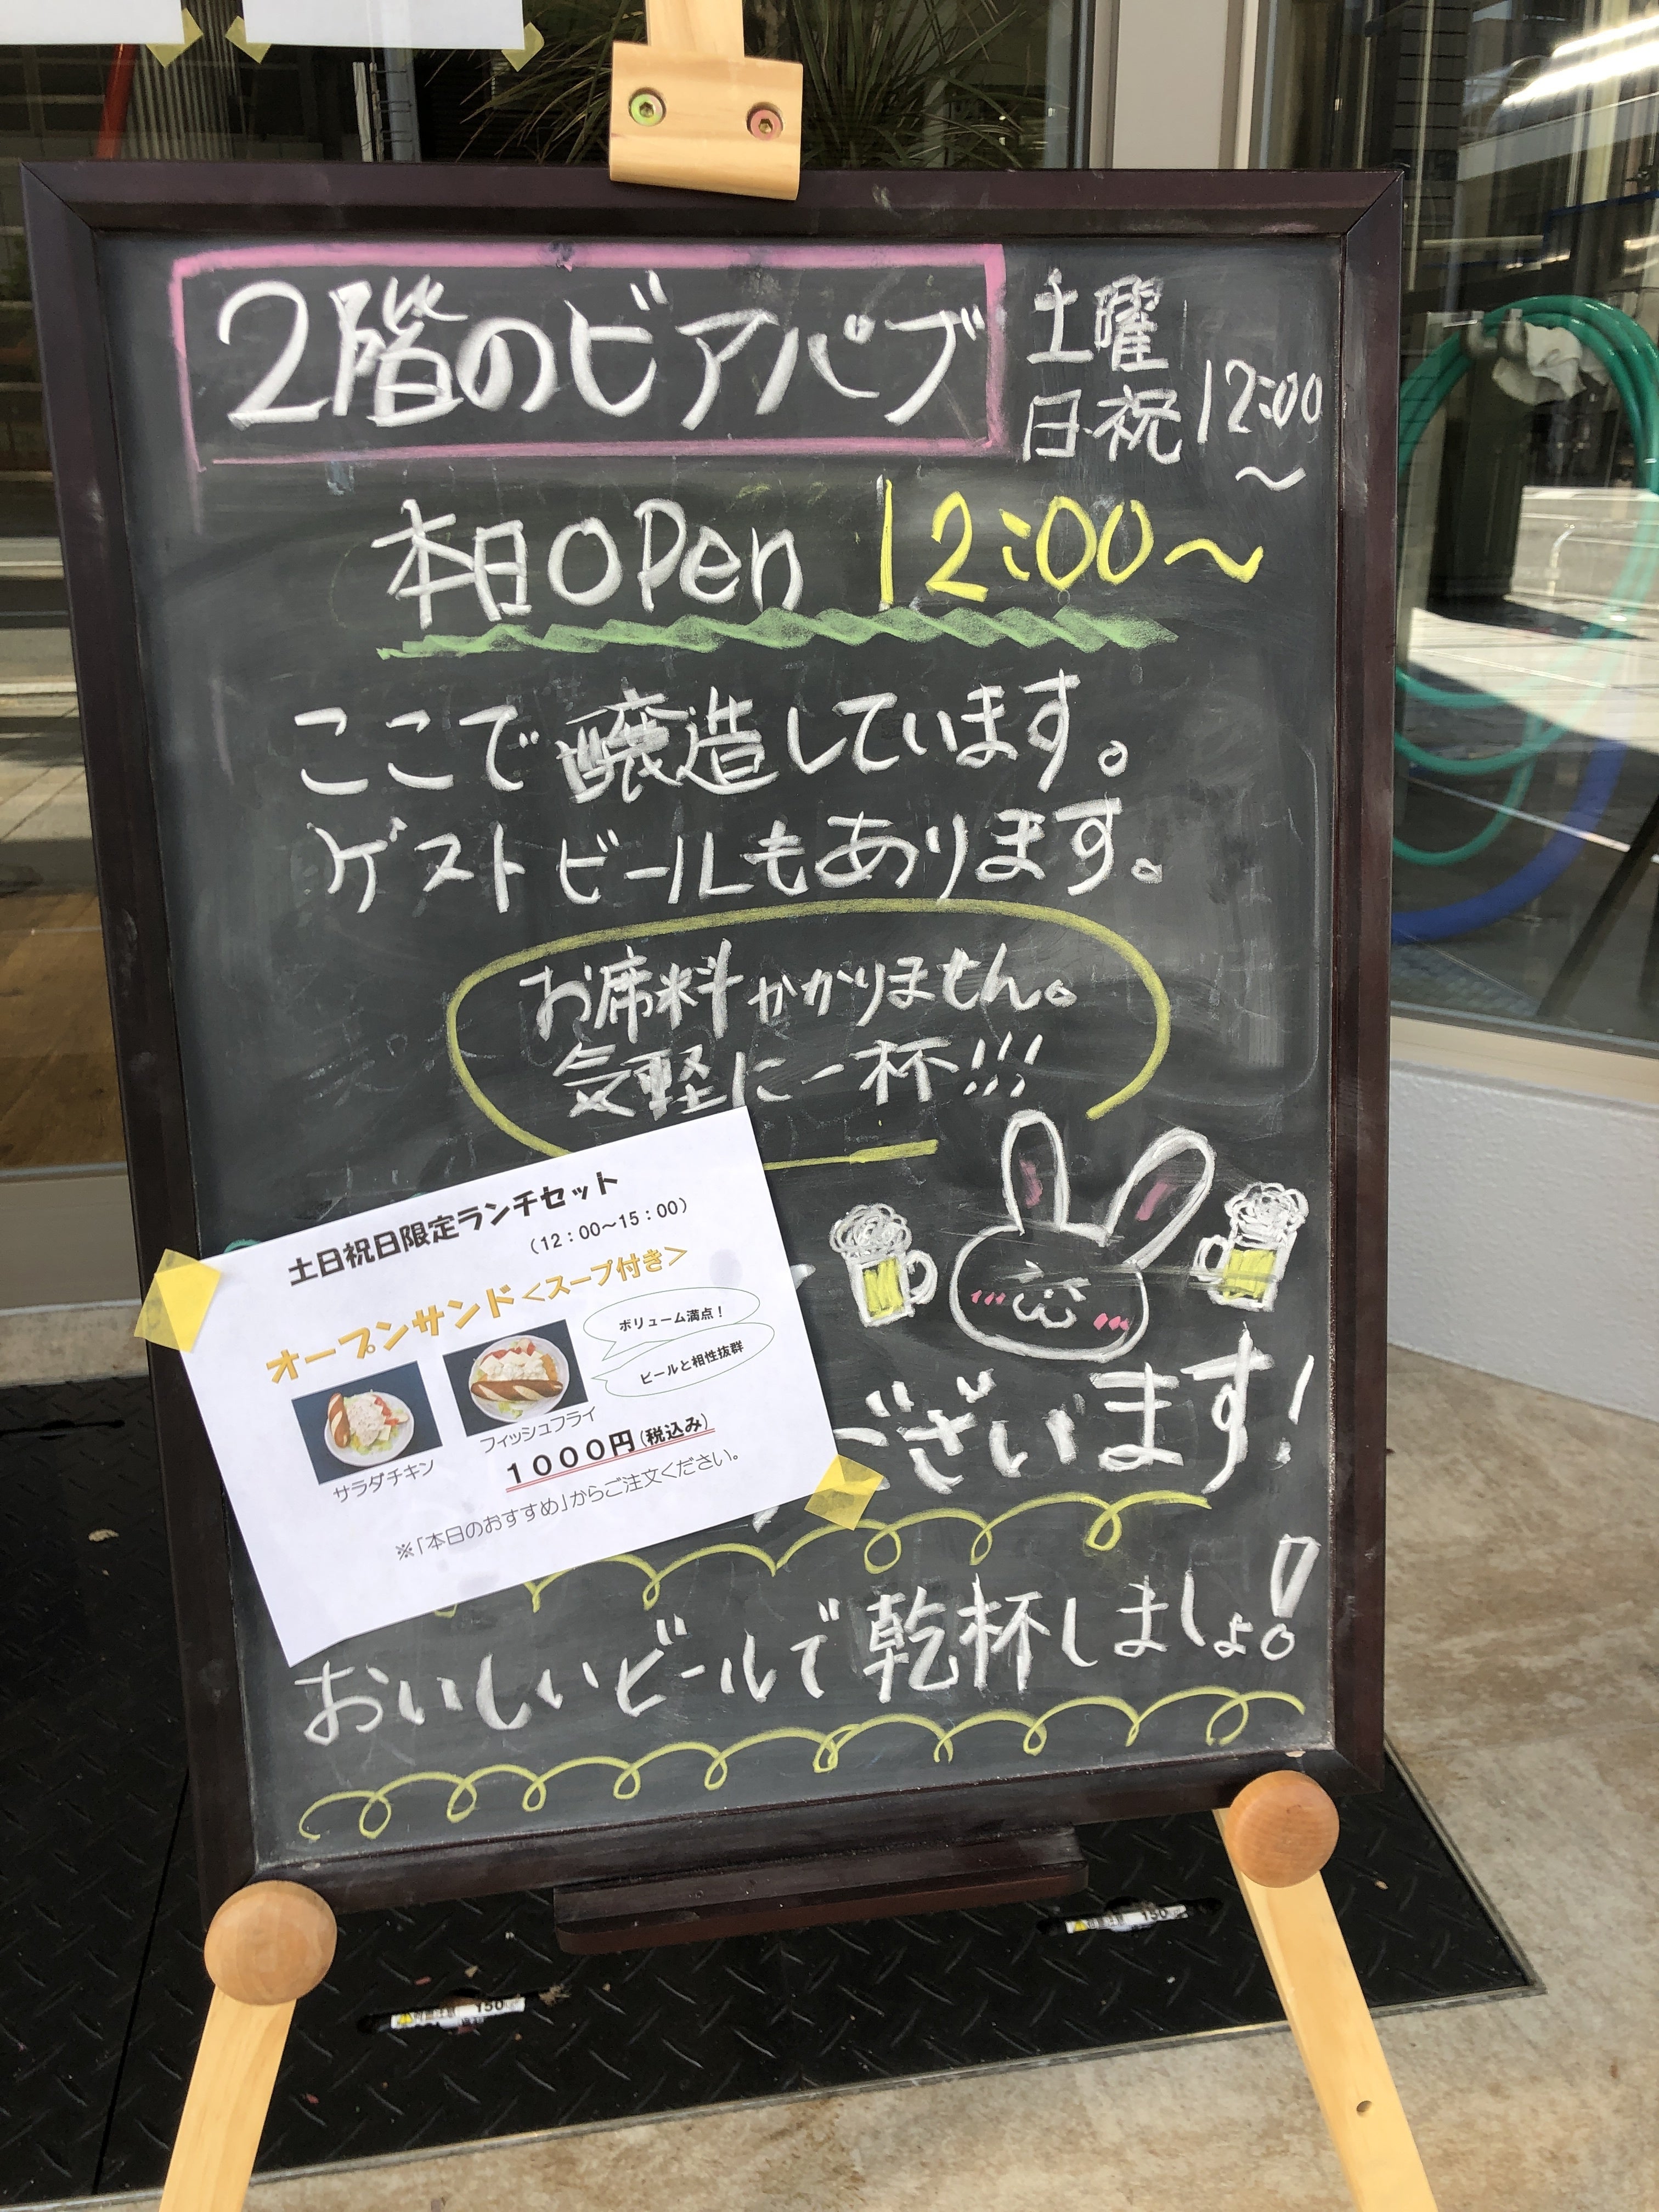 2階のビアパブ
土曜
日・祝 12:00
～
本日OPen 12:00～
ここで醸造しています。
ゲストビールもあります。
お席料かかりません。
気軽に一杯!!!
土日祝日限定ランチセット
（12：00～15：00）
オープンサンド＜スープ付き＞
ボリューム満点！
ビールと相性抜群
サラダチキン
フィッシュフライ
１０００円（税込み）
※「本日のおすすめ」からご注文ください。
ございます!
おいしいビールで乾杯しましょ!
150
150